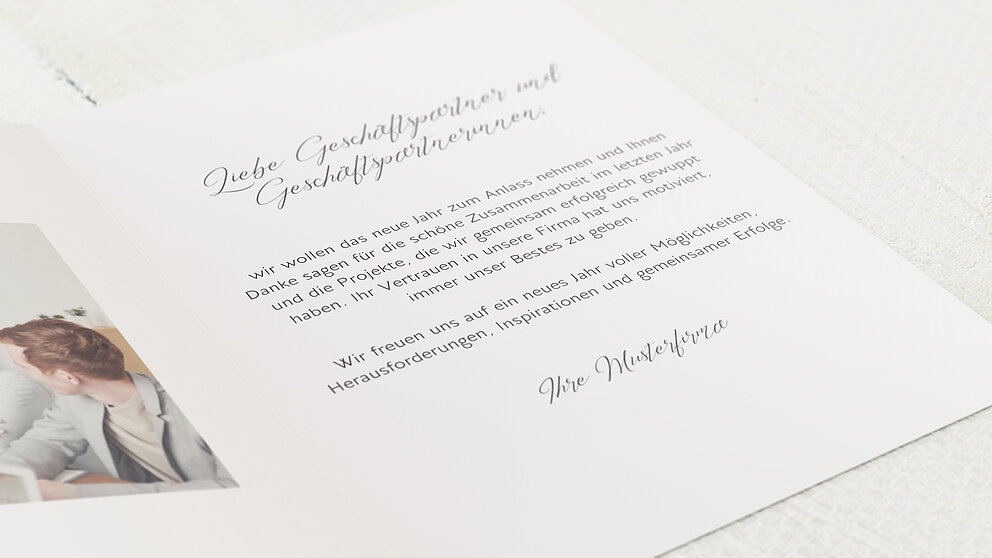 Liebe Geschäftspartner und
Geschäftspartnerinnen,
wir wollen das neue Jahr zum Anlass nehmen und Ihnen
Danke sagen für die schöne Zusammenarbeit im letzten Jahr
und die Projekte, die wir gemeinsam erfolgreich gewuppt
haben. Ihr Vertrauen in unsere Firma hat uns motiviert,
immer unser Bestes zu geben.
Wir freuen uns auf ein neues Jahr voller Möglichkeiten,
Herausforderungen, Inspirationen und gemeinsamer Erfolge.
Ihre Musterfirma